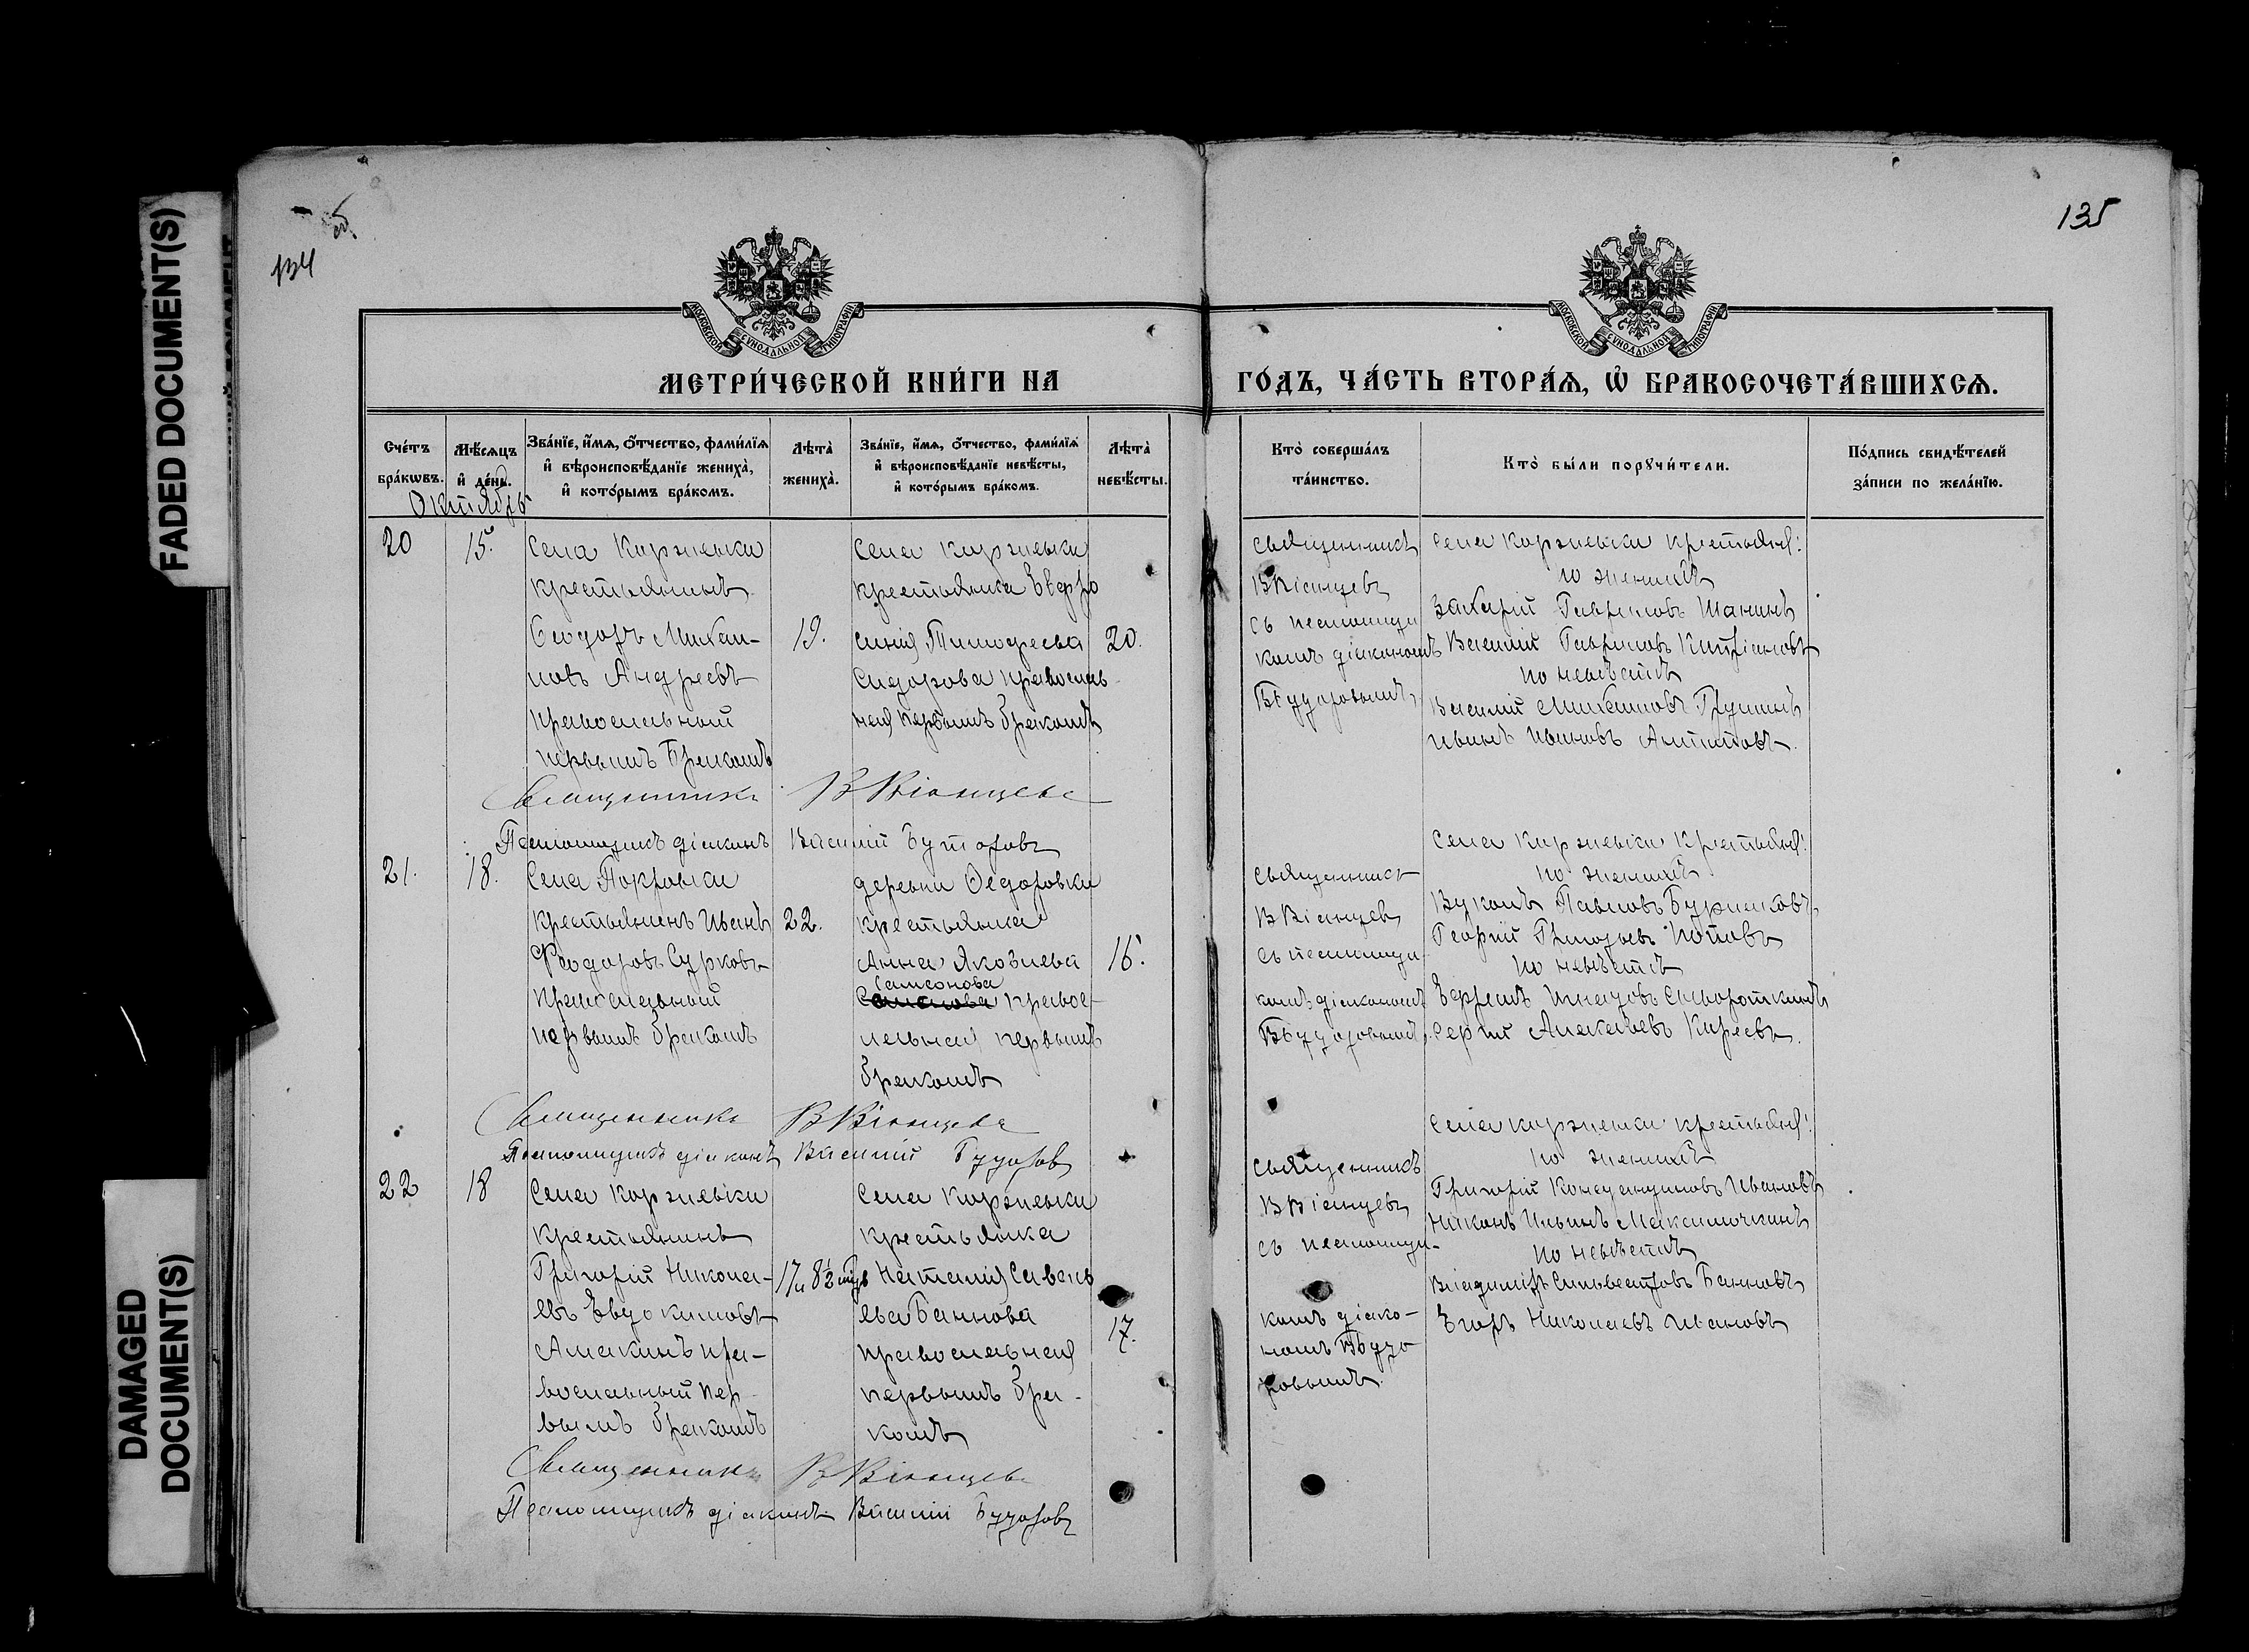 FADED DOCUMENT(S)
DAMAGED
DOCUMENT(S)
134
об.
135
МОСКОВСКОЙ СѴНОДАЛЬНОЙ ТИПОГРАФІИ
МОСКОВСКОЙ СѴНОДАЛЬНОЙ ТИПОГРАФІИ
МЕТРИ́ЧЕСКОЙ КНИ́ГИ НА
ГО́ДЪ, ЧА́СТЬ ВТОРА́Ѧ, Ѡ҆ БРАКОСОЧЕТА́ВШИХСѦ.
Сче́тъ
бра́кѡвъ.
Мѣ́сѧцъ
и҆ де́нь.
Зва́нїе, и҆́мѧ, ѻ҆́тчество, фами́лїѧ
и҆ вѣроисповѣ́данїе жениха̀,
и҆ кото́рымъ бра́комъ.
Лѣта̀
жениха̀.
Зва́нїе, и҆́мѧ, ѻ҆́тчество, фами́лїѧ
и҆ вѣроисповѣ́данїе невѣ́сты,
и҆ кото́рымъ бра́комъ.
Лѣта̀
невѣ́сты.
Кто̀ соверша́лъ
та́инство.
Кто̀ бы́ли порꙋчи́тели.
По́дпись свидѣ́телей
за́писи по жела́нїю.
Октябрь
20
15.
Села Коржевки
крестьянинъ
Ѳеодоръ Михаи-
ловъ Андреевъ
православный
первымъ бракомъ
19.
Села Коржевки
крестьянка Евфро
синія Тимофеева
Сидорова православ
ная первымъ бракомъ
20.
священникъ
съ псаломщи
комъ діакономъ
села Коржевки крестьяне:
по женихѣ
Захарій Гавриловъ Шанинъ
Василій Гавриловъ
по невѣстѣ
Василій Михаиловъ
Иванъ Ивановъ Антиповъ.
Священникъ
Псаломщикъ діаконъ Василій
21.
18.
Села Покровки
крестьянинъ Иванъ
Ѳеодоровъ Сурковъ
православный
первымъ бракомъ
22.
деревни Ѳедоровки
крестьянка
Анна Яковлева
Самсонова
правос-
лавная первымъ
бракомъ
16.
священникъ
съ псаломщи
комъ діакономъ
Села Коржевки Крестьяне:
по женихѣ
Вуколъ Павловъ Бурлаковъ
Георгій Григорьевъ Поповъ
по невѣстѣ
Ефремъ Сывороткинъ
Сергій Алексѣевъ Киреевъ.
Священникъ
Псаломщикъ діаконъ Василій
22
18
Села Коржевки
крестьянинъ
Григорій Никола-
евъ Евдокимовъ
пра-
вославный пер-
вымъ бракомъ
17 и 8½ мцъ
Села Коржевки
крестьянка
Наталія Савель
ева Баннова
православная
первымъ бра-
комъ
17.
священникъ
съ псаломщи-
комъ діако-
номъ
села Коржевки крестьяне:
по женихѣ
Григорій Ивановъ
Никонъ Ильинъ Максимочкинъ
по невѣстѣ
Владиміръ Сильвестровъ Банновъ
Егоръ Николаевъ Ивановъ
Священникъ
Псаломщикъ діаконъ Василій